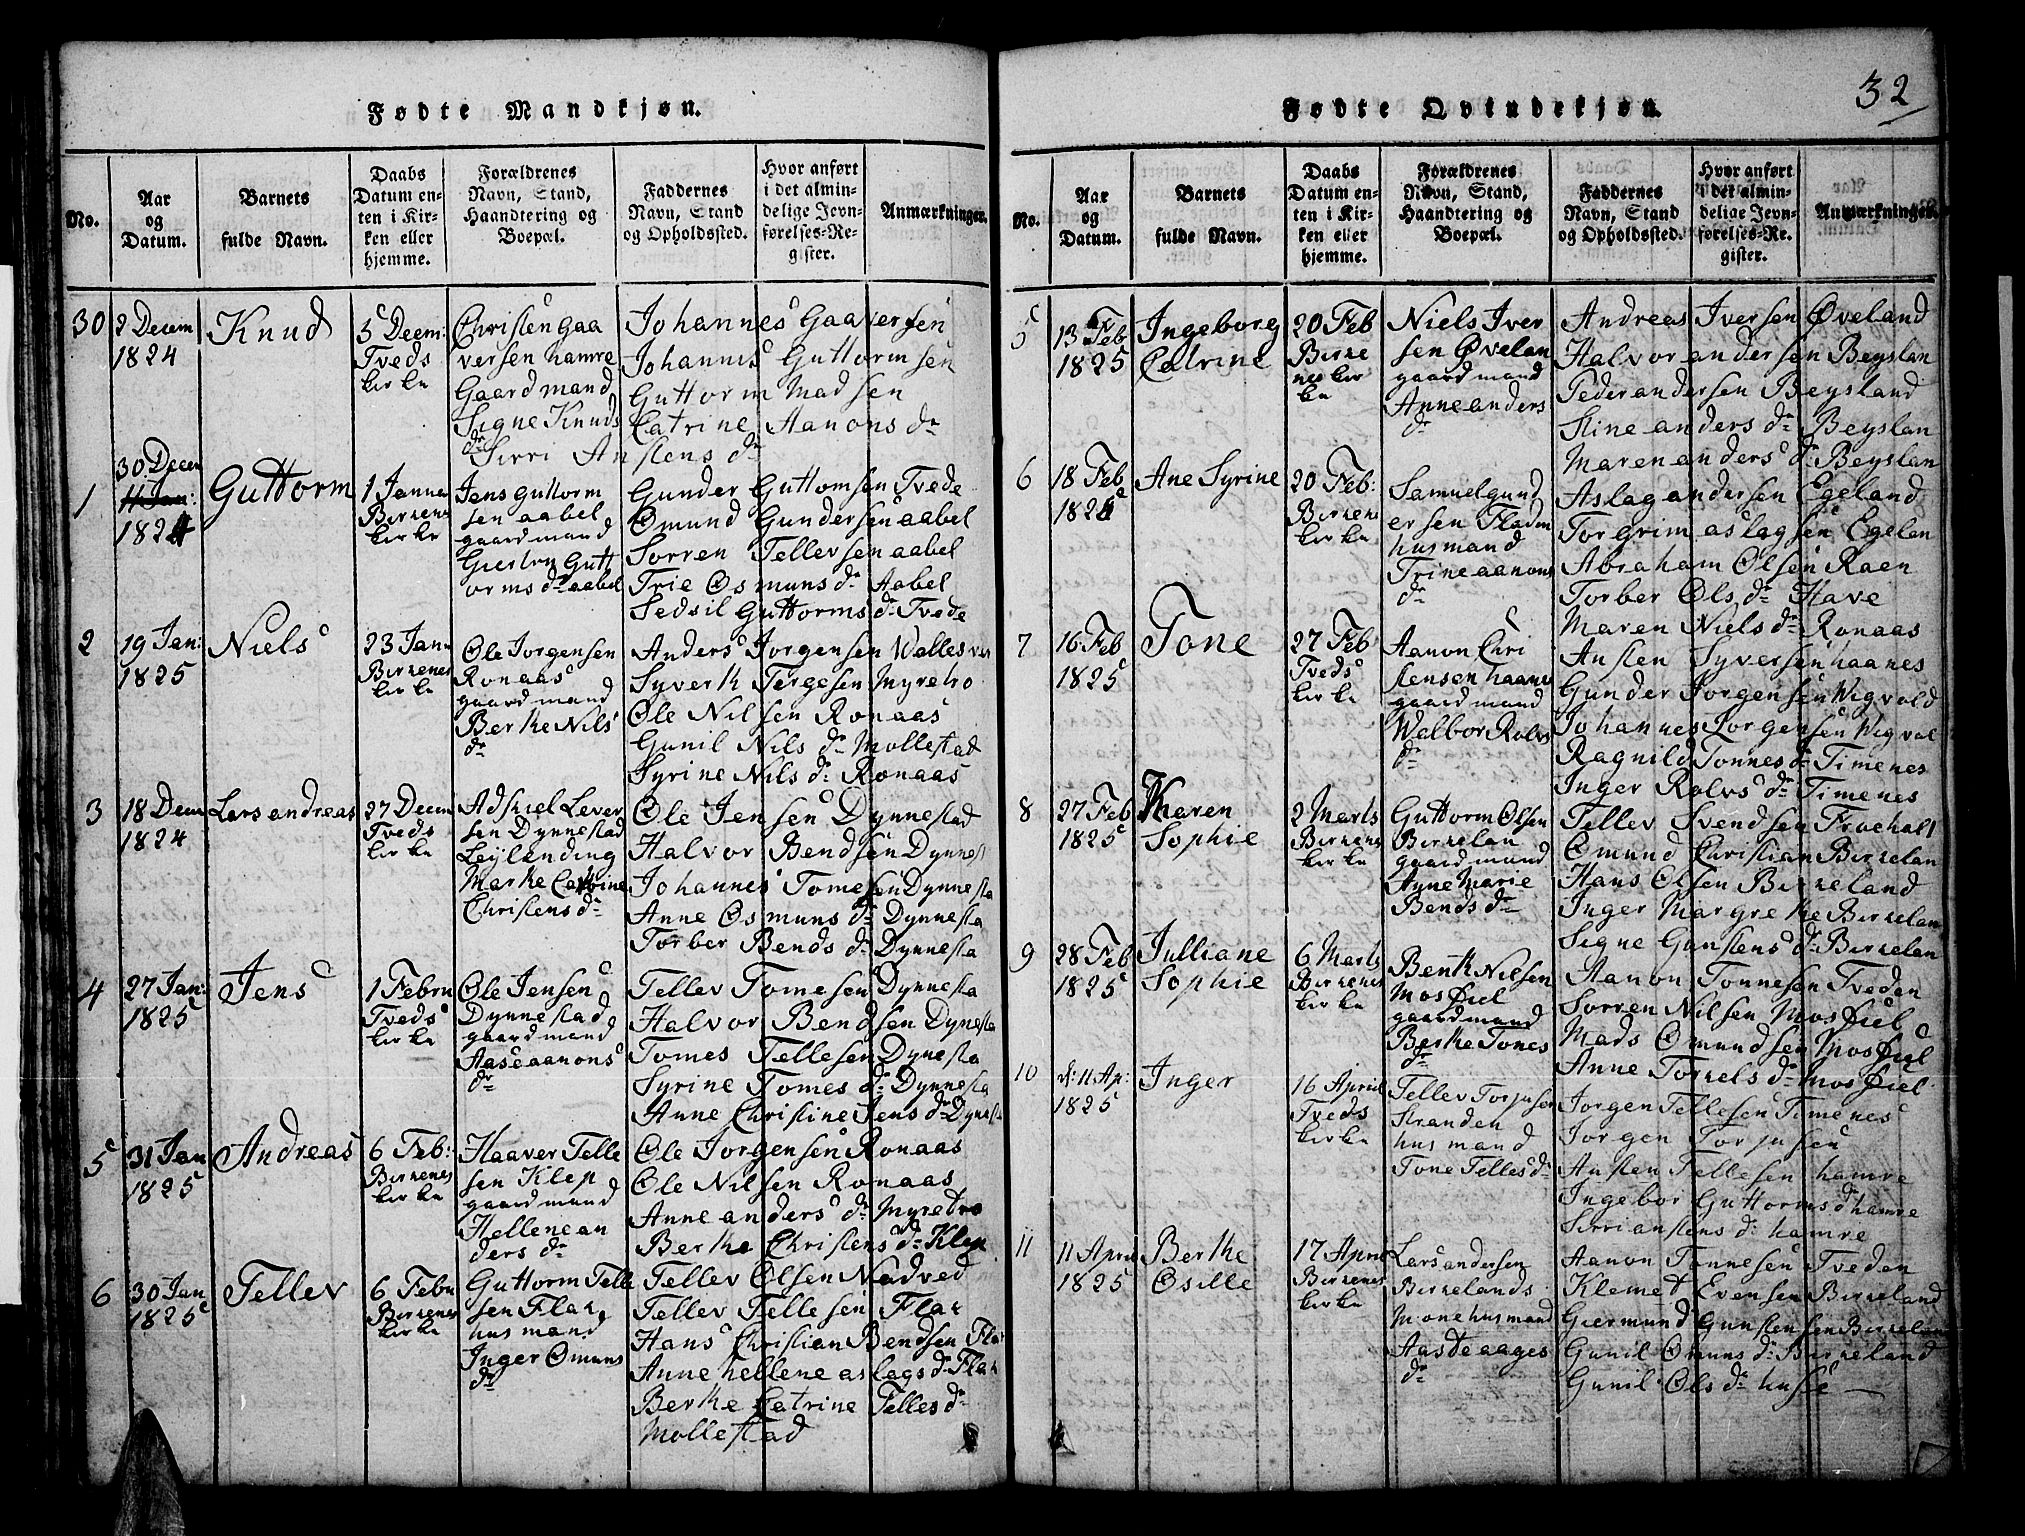 32
Fødte Mandkjøn.
No.
Aar og Datum.
Barnets fulde Navn.
Daabs Datum enten i Kirken eller hjemme.
Forældrenes Navn, Stand, Haandtering og Boepæl.
Faddernes Navn, Stand og Opholdssted.
Hvor anført i det almindelige Jevnførelses-Register.
Anmærkninger.
30
2 Decem
1824
Knud
5 Deem:
Tveds
kirke
Christen Gaa
versen hamre
Gaardmand
Signe Knuds
dr
Johannes Gaaversen
Johannes Guttormsen
Guttorm Madsen
Catrine Aanons dr
Sirri Anstens dr
1
30 Decem
11 Jan:
1824
Guttorm
1 Janna
Birrenes
kirke
Jens guttorm
sen aabel
gaardmand
Gutt
orms dr aabel
Gunder Guttomsen Tvede
Omund Gundersen aabel
Sorren Tellevsen aabel
Trie Osmuns dr Aabel
Sedsil Guttorms dr Tvede
2
19 Jan:
1825
Niels
23 Jan
Birrenes
kirke
Ole Jorgensen
Ronaas
gaardmand
Berthe Nils
dr
Anders Jorgensen Wallesver
Syverth Tergesen Myrebo
Ole Nilsen Ronaas
Gunil Nils dr Mollestad
Syrine Nils dr Ronaas
3
18 Dem
1824
Lars andreas
27 Deem
Tveds
kirke
Adskiel Lever
sen Dynnestad
Leylending
Marthe Cathrine
Christens dr
Ole Jensen Dynnestad
Halvor Bendsen Dynnest
Johannes Tomesen Dynnesta
Anne Osmuns dr Dynnesta
Torber Bends dr Dynnesta
4
27 Jan:
1825
Jens
1 Febru
Tveds
kirke
Ole Jensen
Dynnestad
gaardmand
Aase aanons
dr
Tellev Tomesen Dynnesta
Halvor Bendsen Dynesta
Tomes Tellesen Dynesta
Syrine Tomes dr Dynnesta
Anne Christine Jens dr Dynesta
5
31 Jan
1825
Andreas
6 Feb:
Birrenes
kirke
Haaver Telle
sen Klep
gaardmand
Hellene an
ders dr
Ole Jorgensen Ronaas
Ole Nilsen Ronaas
Anne anders dr Myrebro
Berthe Christens dr Klep
6
30 Jan
1825
Tellev
6 Febru
Birrenes
kirke
Guttorm Telle
sen Flak
husmand
Inger Omuns
dr
Tellev Olsen Nadved
Tellev Tellesen Flak
Hans Christian Bendsen Flak
Anne hellene aslags dr Flak
Berthe Catrine Telles dr
Mollestad
Fødte Qvindekjøn.
No.
Aar og Datum.
Barnets fulde Navn.
Daabs Datum enten i Kirken eller hjemme.
Forældrenes Navn, Stand, Haandtering og Boepæl.
Faddernes Navn, Stand og Opholdssted.
Hvor anført i det almindelige Jevnførelses-Register.
Anmærkninger.
5
13 Feb
1825
Ingeborg
Catrine
20 Feb
Birre
nes kir
ke
Niels Iver
sen Øvelan
gaardmand
Anne anders
dr
Andreas Iversen Øveland
Halvor andersen Beyslan
Peder andersen Beysland
Stine anders dr Beyslan
Maren anders dr Beyslan
6
18 Feb
1825
Ane Syrine
20 Feb:
Birrenes
kirke
Samuel gund
ersen Fladen
husmand
Trine aanons
dr
Aslag andersen Egeland
Torgrim aslagsen Egelan
Abraham Olsen Raen
Torber Ols dr Have
Maren Niels dr Ronaas
7
16 Feb
1825
Tone
27 Feb
Tveds
kirke
Aanon Chri
stensen haanes
gaardmand
Walbor Rolvs
dr
Ansten Syversen haanes
Gunder Jorgensen Wigvold
Johannes Jorgensen Wigvol
Ragnild Tonnes dr Timenes
Inger Rolvs dr Timenes
8
27 Feb
1825
Karen
Sophie
2 Marts
Birrenes
kirke
Guttorm Olsen
Birkelan
gaardmand
Anne Marie
Bends dr
Tellev Svendsen
Omund Christian Birkelan
Hans Olsen Birkeland
Inger Margrethe Birkelan
Signe Gunstens dr Birkelan
9
28 Feb
1825
Julliane
Sophie
6 Marts
Birrenes
kirke
Benth Nilsen
Mosfiel
gaardmand
Berthe Tones
dr
Aanon Tonnesen Tveden
Sorren Nilsen Mosfiel
Mads Omundsen Mosfiel
Anne Torkels dr Mosfiel
10
d: 11 Ap:
1825
Inger
16 April
Tveds
kirke
Tellev Torjusen
Stranden
husmand
Tone Telles dr
Jorgen Tellesen Timenes
Jorgen Torjusen
Ansten Tellesen hamre
Ingebor Guttorms dr hamre
Sirri anstens dr hamre
11
11 April
1825
Berthe
Osille
17 April
Birrenes
kirke
Lars andersen
Birkelands
Mone husmand
Aaste aages
dr
Aanon Tonnesen Tveden
Klemet Evensen Birkeland
Giermund Gunstensen Birkeland
Gunil Omuns dr Birkeland
Gunil Ols dr husse